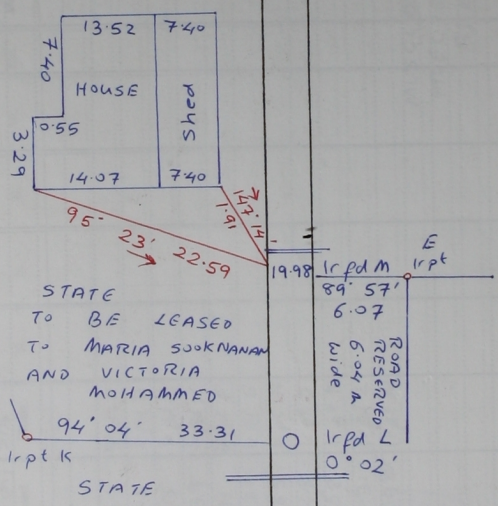 13.52
7.40
7.40
HOUSE
Shed
0.55
3.29
14.07
7.40
147° 14
1.91
95° 23'
22.59
19.98
Irfd M
E
Irpt
89° 57'
6.07
STATE
TO BE LEASED
TO MARIA SOOKNANAN
AND VICTORIA
MOHAMMED
ROAD
RESERVED
6.04 m
wide
94° 04' 33.31
O
Irfd L
0° 02'
Irpt K
STATE